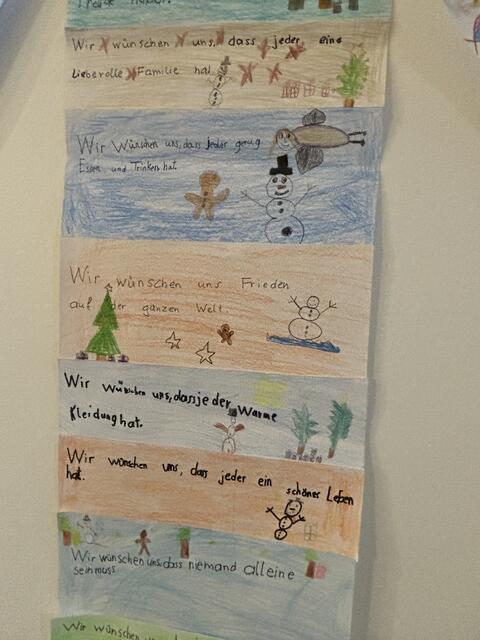 Wir wünschen uns, dass jeder eine
Lieberolle Familie hat.
Wir Wünschen uns, dass jeder genug
Essen und Trinken hat.
Wir wünschen uns Frieden
auf der ganzen Welt.
Wir wünschen uns, dass jeder Warme
Kleidung hat.
Wir wünschen uns, dass jeder ein schönes Leben
hat.
Wir wünschen uns, dass niemand alleine
sein muss
Wir wünschen